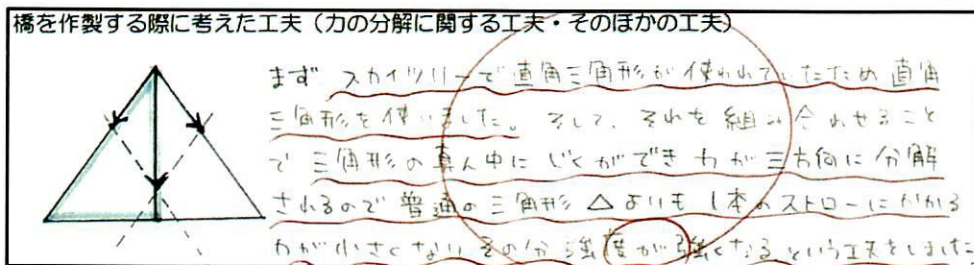 橋を作製する際に考えた工夫（力の分解に関する工夫・そのほかの工夫）
まず スカイツリーで直角三角形が使われていたため 直角
三角形を使いました。そして、それを組み合わせること
で三角形の真ん中にじくができ力が三方向に分解
されるので普通の三角形△よりも1本のストローにかかる
力が小さくなりその分強度が強くなるという工夫をしました